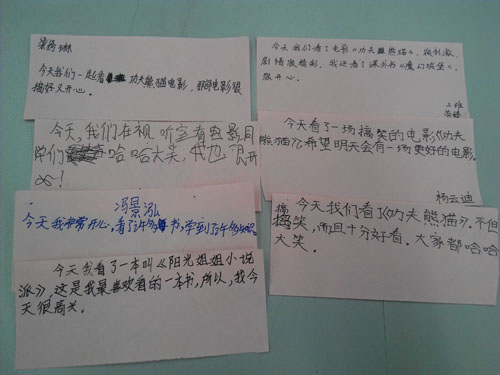 梁
今天我们一起看功夫熊猫电影，那部电影很
搞好又开心。
今天，我们在视听室看电影，同
学们哈哈大笑，我也很开
心！
冯景泓
今天我非常开心，看了许多书，学到了许多知识
今天我看了一本叫《阳光姐姐小说
派》这是我最喜欢看的一本书，所以，我今
天很高兴。
今天我们看了电影《功夫熊猫》，很刺激，
剧情很精彩，我还看了课外书《魔幻城堡》，
很开心。
今天看了一场搞笑的电影《功夫
熊猫》，希望明天会有一场更好的电影。
杨云迪
今天我们看了《功夫熊猫》。不但
搞笑，而且十分好看，大家都哈哈
大笑。